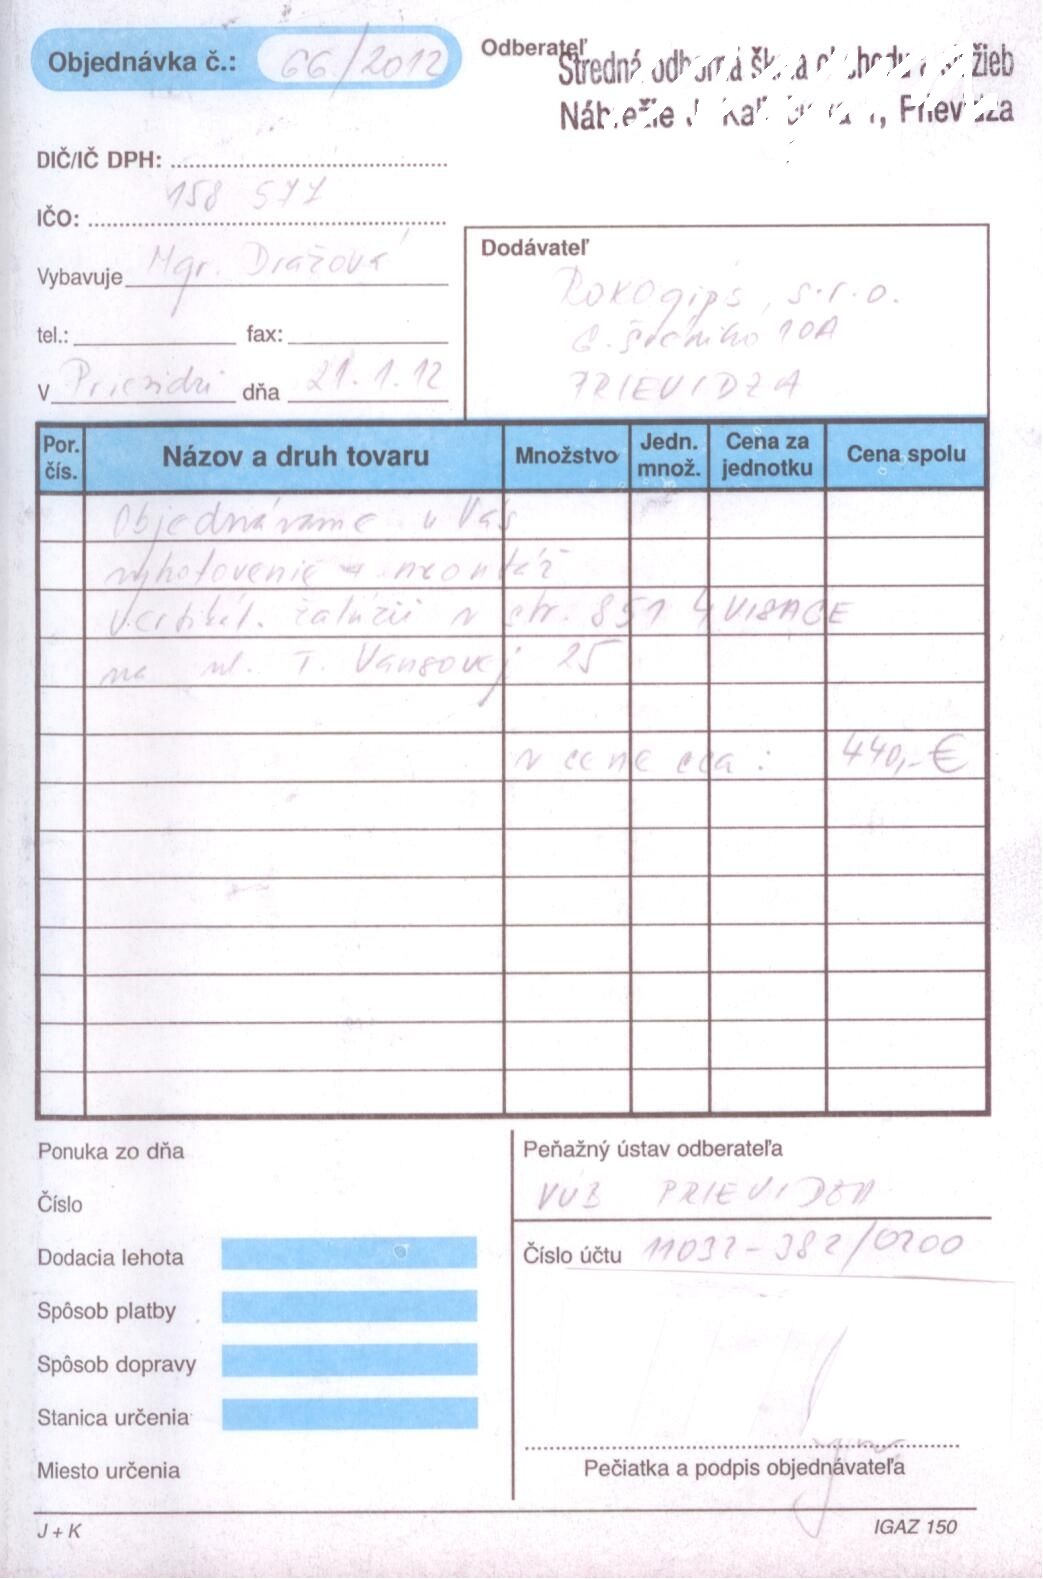 Objednávka č.: 66/2012
Odberateľ
Stredná odborná škola obchodu a služieb
Nábrežie J. Kal, Prievidza
DIČ/IČ DPH:
IČO: 158 577
Vybavuje Mgr. Dražová
tel.: fax:
V Prievidzi dňa 21.1.12
Dodávateľ
ROKOgips, s.r.o.
10A
PRIEVIDZA
Por. čís. Názov a druh tovaru Množstvo Jedn. množ. Cena za jednotku Cena spolu
Objednávame u Vás
vyhotovenie a montáž
vertikál. žalúzií v str. 851 4 VISAGE
na ul. T. Vansovej 25
v cene cca: 440,-€
Ponuka zo dňa
Číslo
Dodacia lehota
Spôsob platby
Spôsob dopravy
Stanica určenia
Miesto určenia
Peňažný ústav odberateľa
VÚB PRIEVIDZA
Číslo účtu 11032-382/0200
Pečiatka a podpis objednávateľa
J + K
IGAZ 150